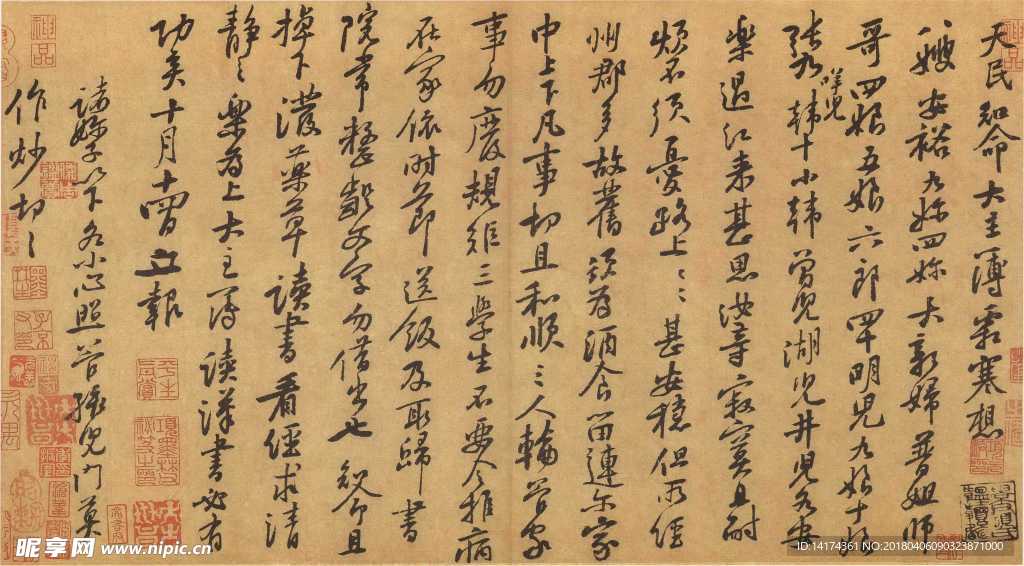 天民知命大主簿霜寒想
八嫂安裕九娣四娣大新婦普姐師
哥四娘五娘六郎四十明兒九娘十娘
張九咩兒韓十小韓曾兒湖兒井兒各安
樂過江來甚思汝等寂寞且耐
煩不須憂路上々々甚安穩但所經
州郡多故舊須為酒食留連尔家
中上下凡事切且和順三人輪管家
事勿廢規矩三學生不要令推病
在家依時節送飯及取歸書
院常整齪文字勿借出也知命且
掉下潑藥草讀書看經求清
靜之樂為上大主簿讀漢書必有
功矣十月十四日立報
諸娣子以下各小心照管孩兒門莫
作炒切々
神品
昵享网 www.nipic.cn
ID:14174361 NO:20180406090323871000